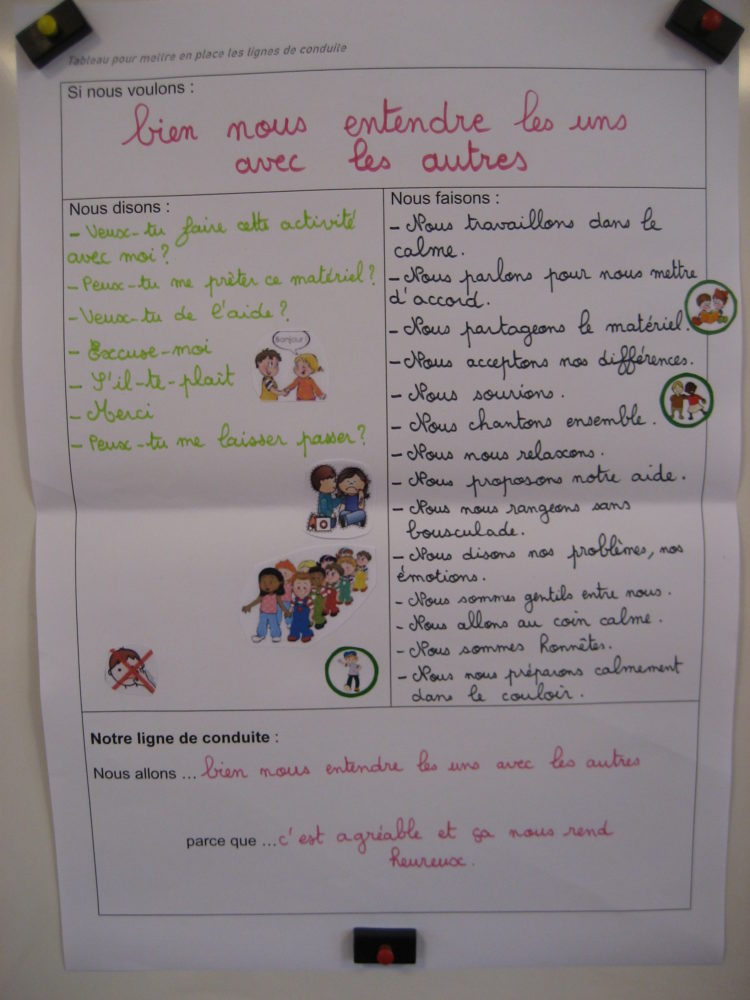 Tableau pour mettre en place les lignes de conduite
Si nous voulons :
bien nous entendre les uns
avec les autres
Nous disons :
- Veux-tu faire cette activité
avec moi ?
- Peux-tu me prêter ce matériel ?
- Veux-tu de l'aide ?
- Excuse-moi
- S'il-te-plaît
- Merci
- Peux-tu me laisser passer ?
Bonjour
Nous faisons :
- Nous travaillons dans le
calme.
- Nous parlons pour nous mettre
d'accord.
- Nous partageons le matériel.
- Nous acceptons nos différences.
- Nous sourions.
- Nous chantons ensemble.
- Nous nous relaxons.
- Nous proposons notre aide.
- Nous nous rangeons sans
bousculade.
- Nous disons nos problèmes, nos
émotions.
- Nous sommes gentils entre nous.
- Nous allons au coin calme.
- Nous sommes honnêtes.
- Nous nous préparons calmement
dans le couloir.
Notre ligne de conduite :
Nous allons ... bien nous entendre les uns avec les autres
parce que ...c'est agréable et ça nous rend
heureux.